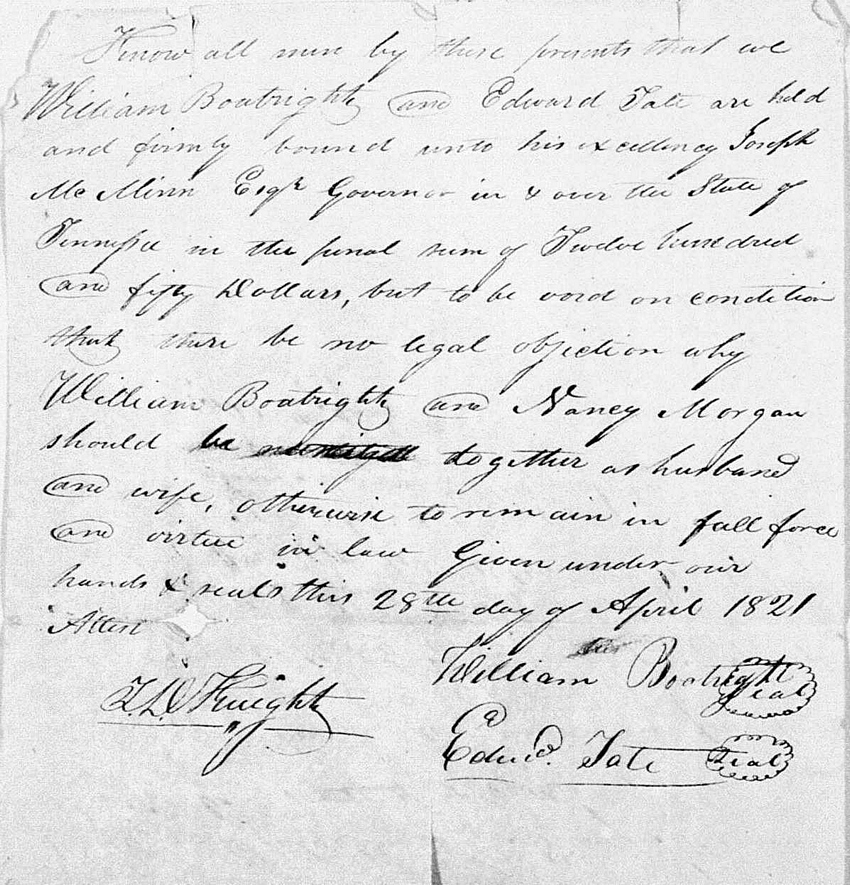 Know all men by these presents that we
William Boatright and Edward Tate are held
and firmly bound unto his excellency Joseph
McMinn Esqr Governor in & over the State of
Tennessee in the penal sum of Twelve hundred
and fifty Dollars, but to be void on condition
that there be no legal objection why
William Boatright and Nancy Morgan
should be together as husband
and wife, otherwise to remain in full force
and virtue in law Given under our
hands & seals this 28th day of April 1821
Attest
William Boatright Seal
Edwd. Tate Seal